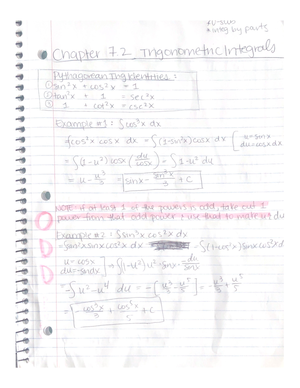 u-sub
* integ by parts
Chapter 7.2 Trigonometric Integrals
Pythagorean Trig Identities:
① sin²x + cos²x = 1
② tan²x + 1 = sec²x
③ 1 + cot²x = csc²x
Example #1: ∫cos³x dx
∫cos²x cosx dx = ∫(1-sin²x)cosx dx [u=sinx
du=cosx dx
= ∫(1-u²) cosx (du/cosx) = ∫1-u² du
= u - u³/3 = sinx - sin³x/3 + C
NOTE: if at least 1 of the powers is odd, take out 1
power from that odd power & use that to make ur du
Example #2: ∫sin³x cos²x dx
= ∫sin²x sinx cos²x dx = ∫(1-cos²x) sinx cos²x d
u = cosx
du = -sinx dx
= ∫(1-u²) u² · sinx · -du/sinx
= -∫u² - u⁴ du = -[u³/3 - u⁵/5] = -u³/3 + u⁵/5
= -cos³x/3 + cos⁵x/5 + C